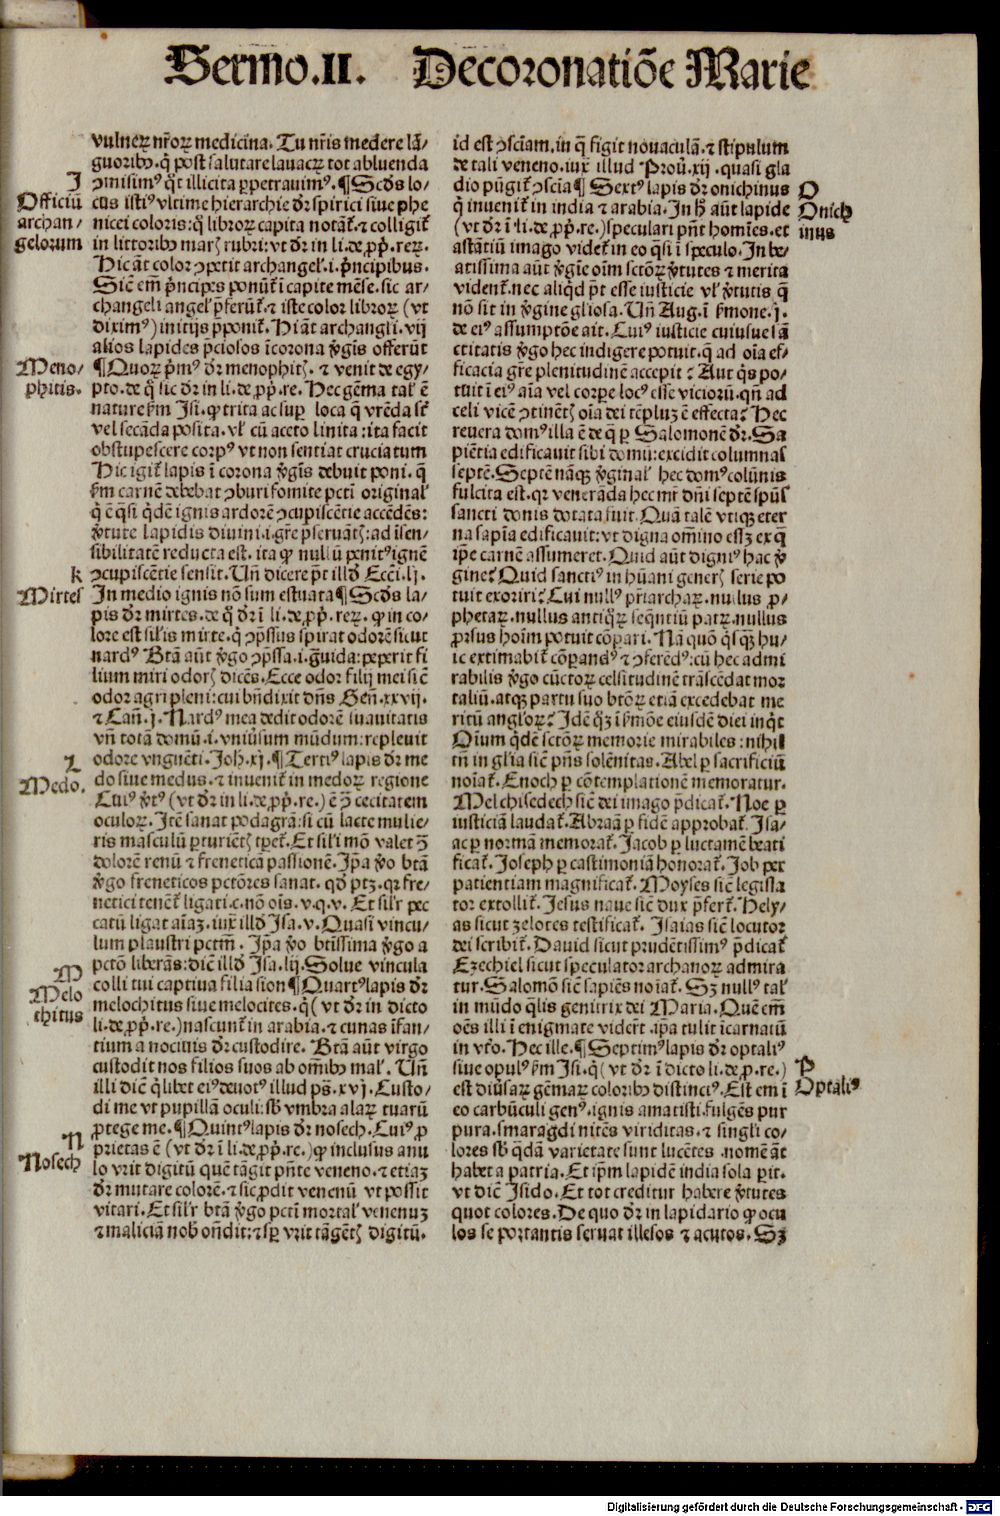 Sermo.II. De coronatiōe Marie
vulneꝝ nr̄oꝝ medicina. Tu nr̄is medere lā/
guoribꝰ. q̄ post salutare lauacꝝ tot abluenda
ꝯmisimꝰ q̄t illicita ꝑpetrauimꝰ. ¶Scd̄s lo/
cus istiꝰ vltime hierarchie dr̄ spirici siue phe
nicei coloris: q̄ libroꝝ capita notāt̄. ⁊ colligit̄
in littoribꝰ marꝭ rubri: vt dr̄ in li. de ꝓp̄. reꝝ.
Hic āt color ꝯpetit archangel̓. i. p̄ncipibus.
Sic em̄ p̄ncipes ponūt̄ ī capite mēse. sic ar/
changeli angel̓ p̄ferūt̄. ⁊ iste color libroꝝ (vt
diximꝰ) initijs p̄ponit̄. Hi āt archangl̓i. vij
alios lapides p̄ciosos ī corona ꝟgīs offerūt
¶Quoꝝ p̄mꝰ dr̄ menophitꝭ. ⁊ venit de egy/
pto. de q̄ sic dr̄ in li. de ꝓp̄. re. Hec gēma tal̓ ē
nature ẜm Isi. ꝙ trita ac suꝑ loca q̄ vrēda st̄
vel secāda posita. vl̓ cū aceto linita: ita facit
obstupescere corpꝰ vt non sentiat cruciatum
Hic igit̄ lapis ī corona ꝟgīs debuit poni. q̄
ẜm carnē debebat ꝯburi fomite pctī original̓
q̄ ē q̄si q̄dē ignis ardorē ꝯcupiscētie accēdēs:
ꝟtute lapidis diuini. i. gr̄e p̄seruātꝭ: ad isen/
sibilitatē reducta est. ita ꝙ nullū penitꝰ ignē
ꝯcupiscētie sensit. Vn̄ dicere pt̄ illd̓ Ecci. lj.
In medio ignis nō sum estuata ¶Scd̄s la/
pis dr̄ mirtes. de q̄ dr̄ ī li. de ꝓp̄. reꝝ. ꝙ in co/
lore est sil̓is mirte. q̄ ꝯp̄ssus spirat odorē sicut
nardꝰ Btā aūt ꝟgo ꝯp̄ssa. i. gūida: peperit fi
lium miri odorꝭ dicēs. Ecce odor filij mei sic
odor agri pleni: cui bn̄dixit dn̄s Gen̄. xxvij.
⁊ Can̄. j. Nardꝰ mea dedit odorē suauitatis
vn̄ totā domū. i. vniūsum mūdum: repleuit
odore vnguēti. Joh. xj. ¶Tertiꝰ lapis dr̄ me
do siue medus. ⁊ inuenit̄ in medoꝝ regione
Cuiꝰ ꝟtꝰ (vt dr̄ in li. de ꝓp̄. re.) ē ꝯ̄ cecitatem
oculoꝝ. Itē sanat podagrā: si cū lacte mulie/
ris masculū ꝑturiētꝭ tꝑet̄. Et sil̓i mō valet ꝯ̄
dolorē renū ⁊ freneticā passionē. Ip̄a ꝟo btā
ꝟgo freneticos pctōres sanat. qd̓ ptꝫ. qr fre/
netici tenēt̄ ligati. c. nō ois̄. v. q. v. Et sil̓r pec
catū ligat aīaꝫ. iux̄ illd̓ Isa. v. Quasi vincu/
lum plaustri pctm̄. Ip̄a ꝟo btissima ꝟgo a
pctō liberās: dic̄ illd̓ Isa. lij. Solue vincula
colli tui captiua filia sion ¶Quartꝰ lapis dr̄
melochitus siue melocites. q̄ ( vt dr̄ in dicto
li. de ꝓp̄. re.) nascunt̄ in arabia. ⁊ cunas īfan/
tium a nociuis dr̄ custodire. Btā aūt virgo
custodit nos filios suos ab om̄ibꝰ mal̓. Vn̄
illi dic̄ q̄libet eiꝰ deuotꝰ illud ps̄. xvj. Custo/
di me vt pupillā oculi: sb̓ vmbra alaꝝ tuarū
ꝓtege me. ¶Quintꝰ lapis dr̄ nosech. Cuiꝰ ꝓ
prietas ē (vt dr̄ ī li. de ꝓp̄. re.) ꝙ inclusus anu
lo vrit digitū quē tāgit p̄nte veneno. ⁊ etiaꝫ
dr̄ mutare colorē. ⁊ sic ꝓdit venenū vt possit
vitari. Et sil̓r btā ꝟgo pctī mortal̓ venenuꝫ
⁊ maliciā nob̓ on̄dit: ⁊ sꝑ vrit tāgētꝭ digitū.
id est ꝯsciam̄, in q̄ figit nouaculā. ⁊ stipulum
de tali veneno. iux̄ illud Prou̓. xij. quasi gla
dio pūgit̄ ꝯscīa ¶Sextꝰ lapis dr̄ onichinus
q̄ inuenit̄ in india ⁊ arabia. In h̓ aūt lapide
(vt dr̄ ī li. de ꝓp̄. re.) speculari pn̄t homīes. et
astātiū imago videt̄ in eo q̄si ī speculo. In be/
atissima aūt ꝟgīe oīm sctōꝝ ꝟtutes ⁊ merita
vident̄. nec aliq̄d pt̄ esse iusticie vl̓ ꝟtutis q̄
nō sit in ꝟgine gliosa. Vn̄ Aug. ī ẜmone. j.
de eiꝰ assumptōe ait. Cuiꝰ iusticie cuiusue sā
ctitatis ꝟgo hec indigere potuit. q̄ ad oīa ef/
ficacia gr̄e plenitudinē accepit? Aut q̄s po/
tuit ī eiꝰ aīa vel corpe locꝰ esse viciorū. qn̄ ad
celi vicē ꝯtinētꝭ oīa dei tēpluꝫ ē effecta? Hec
reuera domꝰ illa ē de q̄ ꝑ Salomonē dr̄. Sa
piētia edificauit sibi domū: excidit columnas
septē. Septē nāqꝫ ꝟginal̓ hec domꝰ colūnis
fulcita est. qr venerāda hec mr̄ dn̄i septē spūs̄
sancti donis dotata fuit. Quā talē vtiqꝫ eter
na sapīa edificauit: vt digna om̄ino essꝫ ex q̄
ip̄e carnē assumeret. Quid aūt digniꝰ hac ꝟ
gine? Quid sanctiꝰ in hūani generꝭ serie po
tuit exoriri? Cui nullꝰ pr̄iarchaꝝ. nullus ꝓ/
phetaꝝ. nullus antiq̄ꝝ seq̄ntiū patꝝ. nullus
ꝓrsus hoīm potuit cōpari. Nā quō q̄sqꝫ hu/
ic extimabit̄ cōpandꝰ ⁊ ꝯferēdꝰ: cū hec admi
rabilis ꝟgo cūctoꝝ celsitudinē trāscēdat mor
taliū. atqꝫ partu suo btōꝝ etiā excedebat me
ritū angl̓oꝝ? Idē q̄ꝫ ī ẜmōe eiusdē diei inq̄t
Oīum q̄dē sctōꝝ memorie mirabiles: nihil
tn̄ in glīa sic p̄ns solēnitas. Abel ꝑ sacrificiū
noīat̄. Enoch ꝑ cōtemplationē memoratur.
Melchisedech sic dei imago p̄dicat̄. Noe ꝑ
iusticiā laudat̄. Abraā ꝑ fidē approbat̄. Isa/
ac ꝑ normā memorat̄. Jacob ꝑ luctamē beati
ficat̄. Joseph ꝑ castimoniā honorat̄. Job per
patientiam magnificat̄. Moyses sic legisla
tor extollit̄. Jesus naue sic dux p̄fert̄. Hely/
as sicut zelotes testificat̄. Isaias sic locutor
dei scribit̄. Dauid sicut prudētissimꝰ p̄dicat̄
Ezechiel sicut speculator archanoꝝ admira
tur. Salomō sic sapiēs noīat̄. Sꝫ nullꝰ tal̓
in mūdo q̄lis genitrix dei Maria. Quē em̄
oēs illi ī enigmate viderūt. ip̄a tulit īcarnatū
in vtero. Hec ille. ¶Septimꝰ lapis dr̄ optaliꝰ
siue opulꝰ ẜm Isi. q̄ ( vt dr̄ ī dicto li. de p̄. re.)
est diūsaꝝ gēmaꝝ coloribꝰ distinctꝰ. Est em̄ ī
eo carbūculi genꝰ. ignis amatisti. fulgēs pur
pura. smaragdi nitēs viriditas. ⁊ singli co/
lores sb̓ q̄dā varietate sunt lucētes. nomē āt
habet a patria. Et ip̄m lapidē india sola ꝑit.
vt dic̄ Isido. Et tot creditur habere ꝟtutes
quot colores. De quo dr̄ in lapidario ꝙ ocu
los se portantis seruat illesos ⁊ acutos. Sꝫ
I
Officiū
archan/
gelorum
Meno/
phitis.
K
Mirtes
L
Medo.
M
Melo
chitus
N
Nosech
O
Onich
inus
P
Optaliꝰ
Digitalisierung gefördert durch die Deutsche Forschungsgemeinschaft - DFG